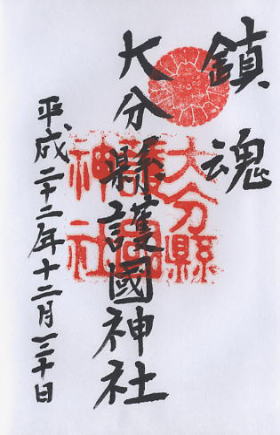 鎮魂
大分縣護國神社
平成二十二年十二月二十日
大分縣護國神社